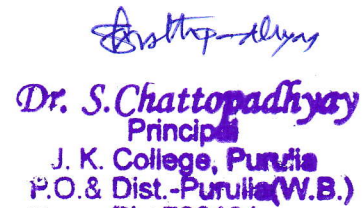 Dr. S.Chattopadhyay
Principal
J. K. College, Purulia
P.O.& Dist.-Purulia(W.B.)